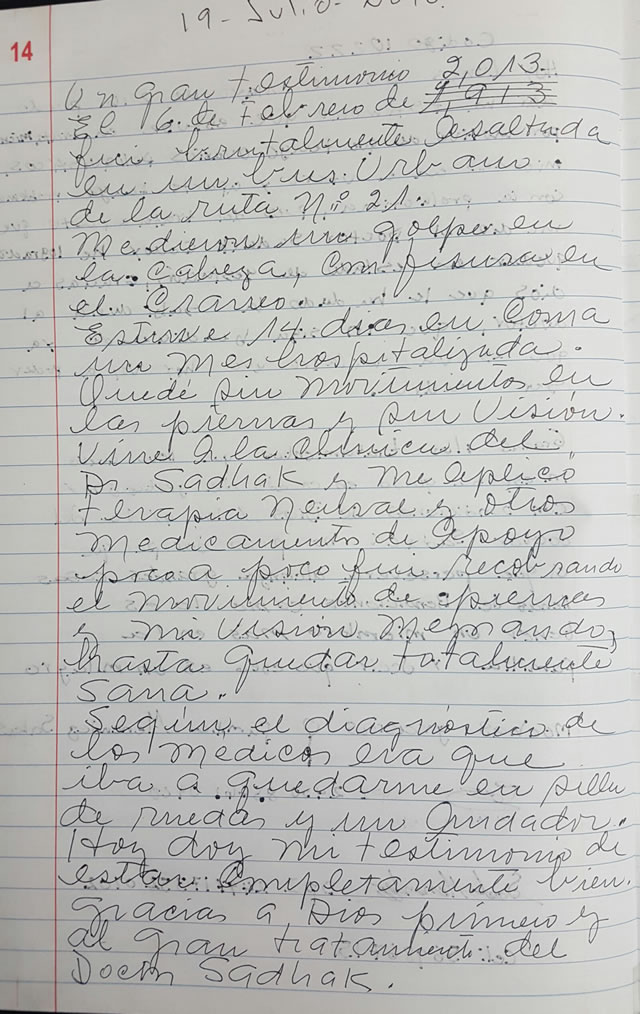 19 - Julio -
14
Un gran testimonio 2,013
El 6 de Febrero de 1,913
fui brutalmente asaltada
en un bus Urbano.
de la ruta Nº 21.
Me dieron un golpe en
la Cabeza, con fisura en
el Craneo.
Estuve 14 dias en Coma
un mes hospitalizada.
Quedé sin movimientos en
las piernas y sin Visión.
Vine a la Clinica del
Dr. Sadhak y me aplicó
terapia Neural y otros
Medicamentos de Apoyo
poco a poco fui recobrando
el movimiento de piernas
y mi Visión Mejorando,
hasta quedar totalmente
Sana.
Según el diagnóstico de
los Medicos era que
iba a quedarme en silla
de ruedas y un Andador.
Hoy doy mi testimonio de
estar Completamente bien.
Gracias a Dios primero y
al gran tratamiento del
Doctor Sadhak.